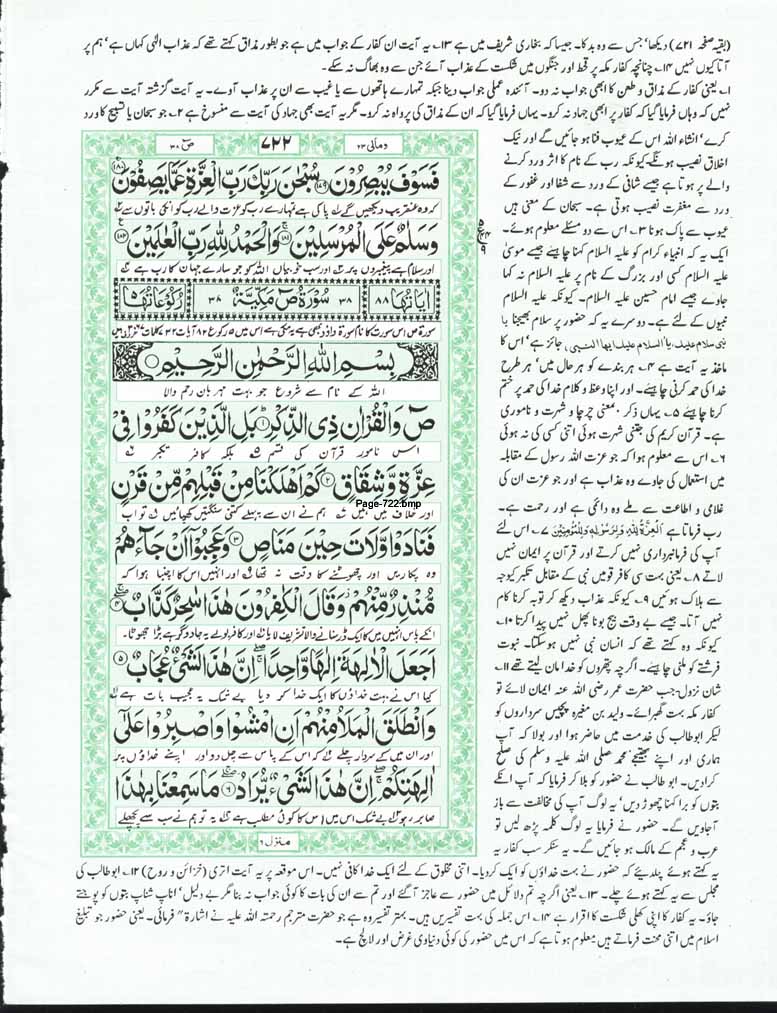 (بقیہ صفحہ ۷۲۱) دیکھا' جس سے وہ بدکا۔ جیسا کہ بخاری شریف میں ہے ۱۳۔ یہ آیت ان کفار کے جواب میں ہے جو بطور مذاق کہتے تھے کہ عذاب الٰہی کہاں ہے' ہم پر
آتا کیوں نہیں ۱۴۔ چنانچہ کفار مکہ پر قحط اور جنگوں میں شکست کے عذاب آئے جن سے وہ بھاگ نہ سکے۔
۱۔ یعنی کفار کے مذاق و طعن کا ابھی جواب نہ دو۔ آئندہ عملی جواب دینا جبکہ تمہارے ہاتھوں سے یا غیب سے ان پر عذاب آوے۔ یہ آیت گزشتہ آیت سے مکرر
نہیں کہ وہاں فرمایا گیا کہ کفار پر ابھی جہاد نہ کرو۔ یہاں فرمایا گیا کہ ان کے مذاق کی پرواہ نہ کرو۔ مگر یہ آیت بھی جہاد کی آیت سے منسوخ ہے ۲۔ جو سبحان یا تسبیح کا ورد
کرے' انشاء اللہ اس کے عیوب فنا ہو جائیں گے اور نیک
اخلاق نصیب ہونگے۔ کیونکہ رب کے نام کا اثر ورد کرنے
والے پر ہوتا ہے جیسے شافی کے ورد سے شفا اور غفور کے
ورد سے مغفرت نصیب ہوتی ہے۔ سبحان کے معنی ہیں
عیوب سے پاک ہونا ۳۔ اس سے دو مسئلے معلوم ہوئے۔
ایک یہ کہ انبیاء کرام کو علیہ السلام کہنا چاہئے جیسے موسیٰ
علیہ السلام کسی اور بزرگ کے نام پر علیہ السلام نہ کہا
جاوے جیسے امام حسین علیہ السلام۔ کیونکہ علیہ السلام
نبیوں کے لئے ہے۔ دوسرے یہ کہ حضور پر سلام بھیجنا یا
نبی سلام علیک، یا السلام علیک ایھا النبی، جائز ہے' اس کا
ماخذ یہ آیت ہے ۴۔ ہر بندے کو ہر حال میں' ہر طرح
خدا کی حمد کرنی چاہئے۔ اور اپنا وعظ و کلام خدا کی حمد پر ختم
کرنا چاہئے ۵۔ یہاں ذکر' معنی چرچا و شہرت و ناموری
ہے۔ قرآن کریم کی جتنی شہرت ہوئی اتنی کسی کی نہ ہوئی
۶۔ اس سے معلوم ہوا کہ جو عزت اللہ رسول کے مقابلہ
میں استعمال کی جاوے وہ عذاب ہے اور جو عزت ان کی
غلامی و اطاعت سے ملے وہ دائمی ہے اور رحمت ہے۔
رب فرماتا ہے اَلْعِزَّةُ لِلّٰهِ وَلِرَسُوْلِهٖ وَلِلْمُؤْمِنِيْنَ ۷۔ اس لئے
آپ کی فرمانبرداری نہیں کرتے اور قرآن پر ایمان نہیں
لاتے ۸۔ یعنی بہت سی کافر قومیں نبی کے مقابل تکبر کیوجہ
سے ہلاک ہوئیں ۹۔ کیونکہ عذاب دیکھ کر توبہ کرنا کام
نہیں آتا۔ جیسے بے وقت بیج بونا پھل نہیں پیدا کرتا ۱۰۔
کیونکہ وہ کہتے تھے کہ انسان نبی نہیں ہو سکتا۔ نبوت
فرشتے کو ملنی چاہئے۔ اگرچہ پتھروں کو خدا مان لیتے تھے ۱۱۔
شان نزول۔ جب حضرت عمر رضی اللہ عنہ ایمان لائے تو
کفار مکہ بہت گھبرائے۔ ولید بن مغیرہ پچیس سرداروں کو
لیکر ابو طالب کی خدمت میں حاضر ہوا اور بولا کہ آپ
ہماری اور اپنے بھتیجے' محمد صلی اللہ علیہ وسلم کی صلح
کرا دیں۔ ابو طالب نے حضور کو بلا کر فرمایا کہ آپ انکے
بتوں کو برا کہنا چھوڑ دیں' یہ لوگ آپ کی مخالفت سے باز
آجاویں گے۔ حضور نے فرمایا یہ لوگ کلمہ پڑھ لیں تو
عرب و عجم کے مالک ہو جائیں گے۔ یہ سنکر سب کفار یہ
ومالی ۲۳
۷۲۲
صٓ ۳۸
فَسَوْفَ يُبْصِرُوْنَ ﴿۱۷۹﴾ سُبْحٰنَ رَبِّكَ رَبِّ الْعِزَّةِ عَمَّا يَصِفُوْنَ ﴿۱۸۰﴾
کہ وہ عنقریب دیکھیں گے ۱ پاکی ہے تمہارے رب کو عزت والے رب کو انکی باتوں سے ۲
وَسَلٰمٌ عَلَى الْمُرْسَلِيْنَ ﴿۱۸۱﴾ وَالْحَمْدُ لِلّٰهِ رَبِّ الْعٰلَمِيْنَ ﴿۱۸۲﴾
اور سلام ہے پیغمبروں پر ۳ اور سب خوبیاں اللہ کو جو سارے جہان کا رب ہے ۴
اٰيَاتُهَا ۸۸ ۳۸ سُوْرَةُ صٓ مَكِّيَّةٌ ۳۸ رُكُوْعَاتُهَا ۵
بِسْمِ اللهِ الرَّحْمٰنِ الرَّحِيْمِ
اللہ کے نام سے شروع جو بہت مہربان رحم والا
صٓ وَالْقُرْاٰنِ ذِي الذِّكْرِ ﴿۱﴾ بَلِ الَّذِيْنَ كَفَرُوْا فِيْ
اس نامور قرآن کی قسم ۵ بلکہ کافر تکبر ۶
عِزَّةٍ وَّشِقَاقٍ ﴿۲﴾ كَمْ اَهْلَكْنَا مِنْ قَبْلِهِمْ مِّنْ قَرْنٍ
Page-722.bmp
اور خلاف میں ہیں ۷ ہم نے ان سے پہلے کتنی سنگتیں کھپائیں ۸ تو اب
فَنَادَوْا وَّلَاتَ حِيْنَ مَنَاصٍ ﴿۳﴾ وَعَجِبُوْا اَنْ جَآءَهُمْ
وہ پکاریں اور چھوٹنے کا وقت نہ تھا ۹ اور انہیں اس کا اچنبا ہوا کہ
مُّنْذِرٌ مِّنْهُمْ وَقَالَ الْكٰفِرُوْنَ هٰذَا سٰحِرٌ كَذَّابٌ ﴿۴﴾
انکے پاس انہیں میں کا ایک ڈر سنانے والا تشریف لایا ۱۰ اور کافر بولے یہ جادوگر ہے بڑا جھوٹا۔
اَجَعَلَ الْاٰلِهَةَ اِلٰهًا وَّاحِدًا اِنَّ هٰذَا لَشَيْءٌ عُجَابٌ ﴿۵﴾
کیا اس نے بہت خداؤں کا ایک خدا کر دیا بے شک یہ عجیب بات ہے ۱۱
وَانْطَلَقَ الْمَلَاُ مِنْهُمْ اَنِ امْشُوْا وَاصْبِرُوْا عَلٰٓى
اور ان میں کے سردار چلے ۱۲ کہ اس کے پاس سے چل دو اور اپنے خداؤں پر
اٰلِهَتِكُمْ اِنَّ هٰذَا لَشَيْءٌ يُّرَادُ ﴿۶﴾ مَا سَمِعْنَا بِهٰذَا
صابر رہو ۱۳ بے شک اس میں اس کا کوئی مطلب ہے ۱۴ یہ تو ہم نے سب سے پچھلے
منزل ۶
یہ کہتے ہوئے چلدیئے کہ حضور نے بہت خداؤں کو ایک کر دیا۔ اتنی مخلوق کے لئے ایک خدا کافی نہیں۔ اس موقعہ پر یہ آیت اتری (خزائن و روح) ۱۲۔ ابو طالب کی
مجلس سے یہ کہتے ہوئے چلے۔ ۱۳۔ یعنی اگرچہ تم دلائل میں حضور سے عاجز آگئے اور تم سے ان کی بات کا کوئی جواب نہ بنا مگر بے دلیل' اناپ شناپ بتوں کو پوجتے
جاؤ۔ یہ کفار کا اپنی کھلی شکست کا اقرار ہے ۱۴۔ اس جملہ کی بہت تفسیریں ہیں۔ بہتر تفسیر وہ ہے جو حضرت مترجم رحمتہ اللہ علیہ نے اشارۃ" فرمائی۔ یعنی حضور جو تبلیغ
اسلام میں اتنی محنت فرماتے ہیں معلوم ہوتا ہے کہ اس میں حضور کی کوئی دنیاوی غرض اور لالچ ہے۔